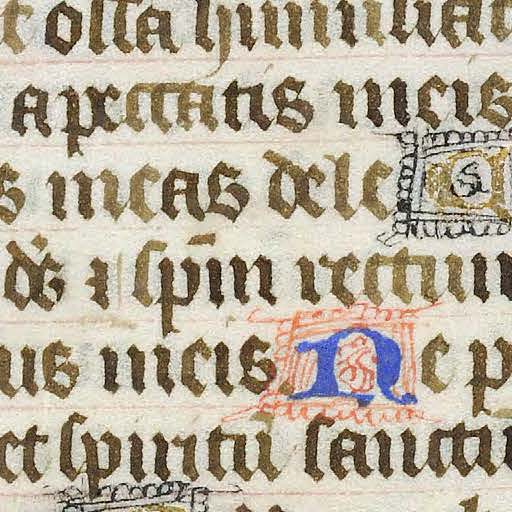 t ossa humiliat
a peccatis meis
s meas dele C
ds ⁊ spm rectum
us meis Ne p
et spiritu sancti